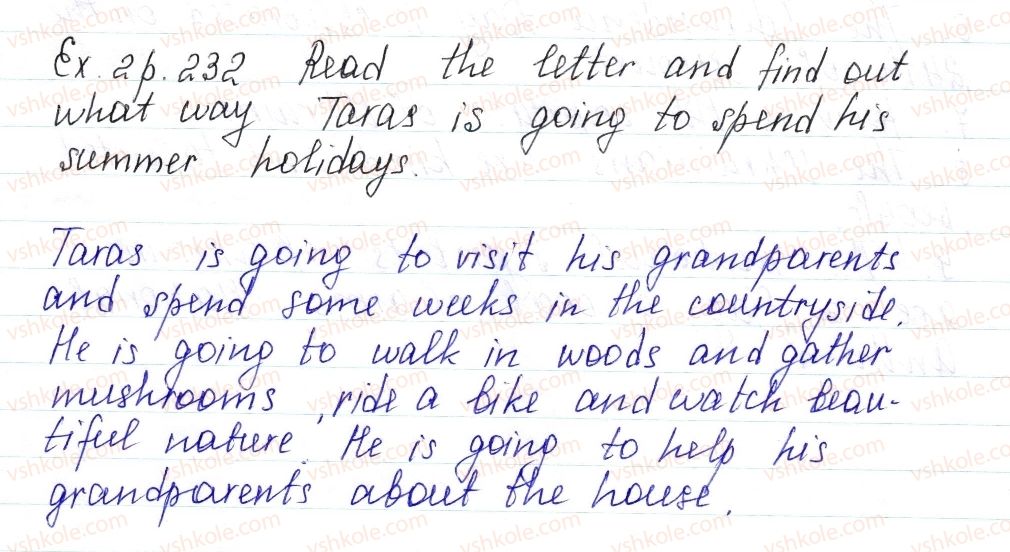 Ex. 2 p. 232 Read the letter and find out
what way Taras is going to spend his
summer holidays.
Taras is going to visit his grandparents
and spend some weeks in the countryside.
He is going to walk in woods and gather
mushrooms, ride a bike and watch beau-
tiful nature. He is going to help his
grandparents about the house.